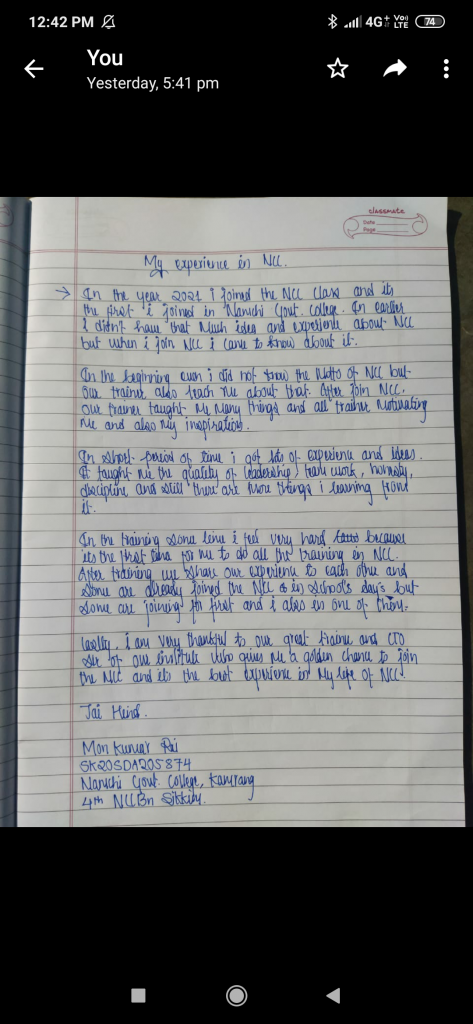 12:42 PM
4G+ Vo)) LTE 74
You
Yesterday, 5:41 pm
classmate
Date
Page
My experience in NCC.
→ In the year 2021 i joined the NCC class and its
the first i joined in Namchi Govt. College. In earlier
i didn't have that much idea and experience about NCC
but when i join NCC i came to know about it.
In the beginning even i did not know the Motto of NCC but
our trainer also teach me about that. After join NCC.
our trainer taught me many things and all trainer motivating
me and also my inspiration.
In short period of time i got lots of experience and ideas.
It taught me the quality of leadership, team work, honesty,
discipline and still there are more things i learning from
it.
In the training some time i feel very hard because
its the first time for me to do all the training in NCC.
After training we share our experience to each other and
some are already joined the NCC in school's day's but
some are joining for first and i also in one of them.
lastly, i am very thankful to our great trainer and CTO
sir of our institute who gives me a golden chance to join
the NCC and its the best experience in my life of NCC.
Jai Hind.
Mon Kumar Rai
SK20SDA205874
Namchi Govt. College, Kamrang
4th NCC Bn Sikkim.